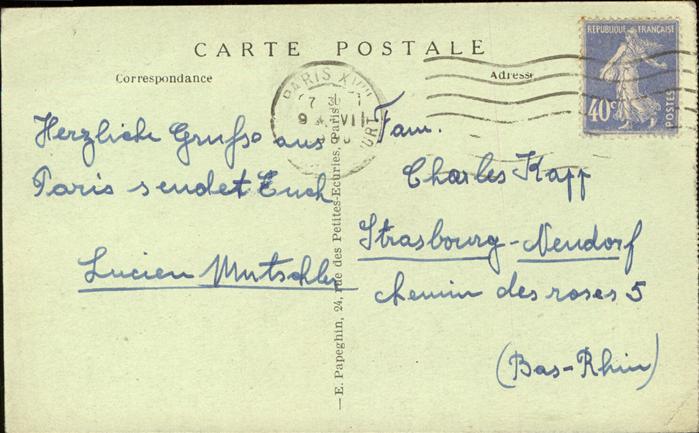 CARTE POSTALE
Correspondance
Adresse
RÉPUBLIQUE FRANÇAISE
40c
POSTES
PARIS XVIII
7 30
Herzliche Grüsse aus
Paris sendet Euch
Lucien Mutschler
Fam.
Charles Kapp
Strasbourg-Neudorf
chemin des roses 5
(Bas-Rhin)
— E. Papeghin, 24, rue des Petites-Ecuries, Paris